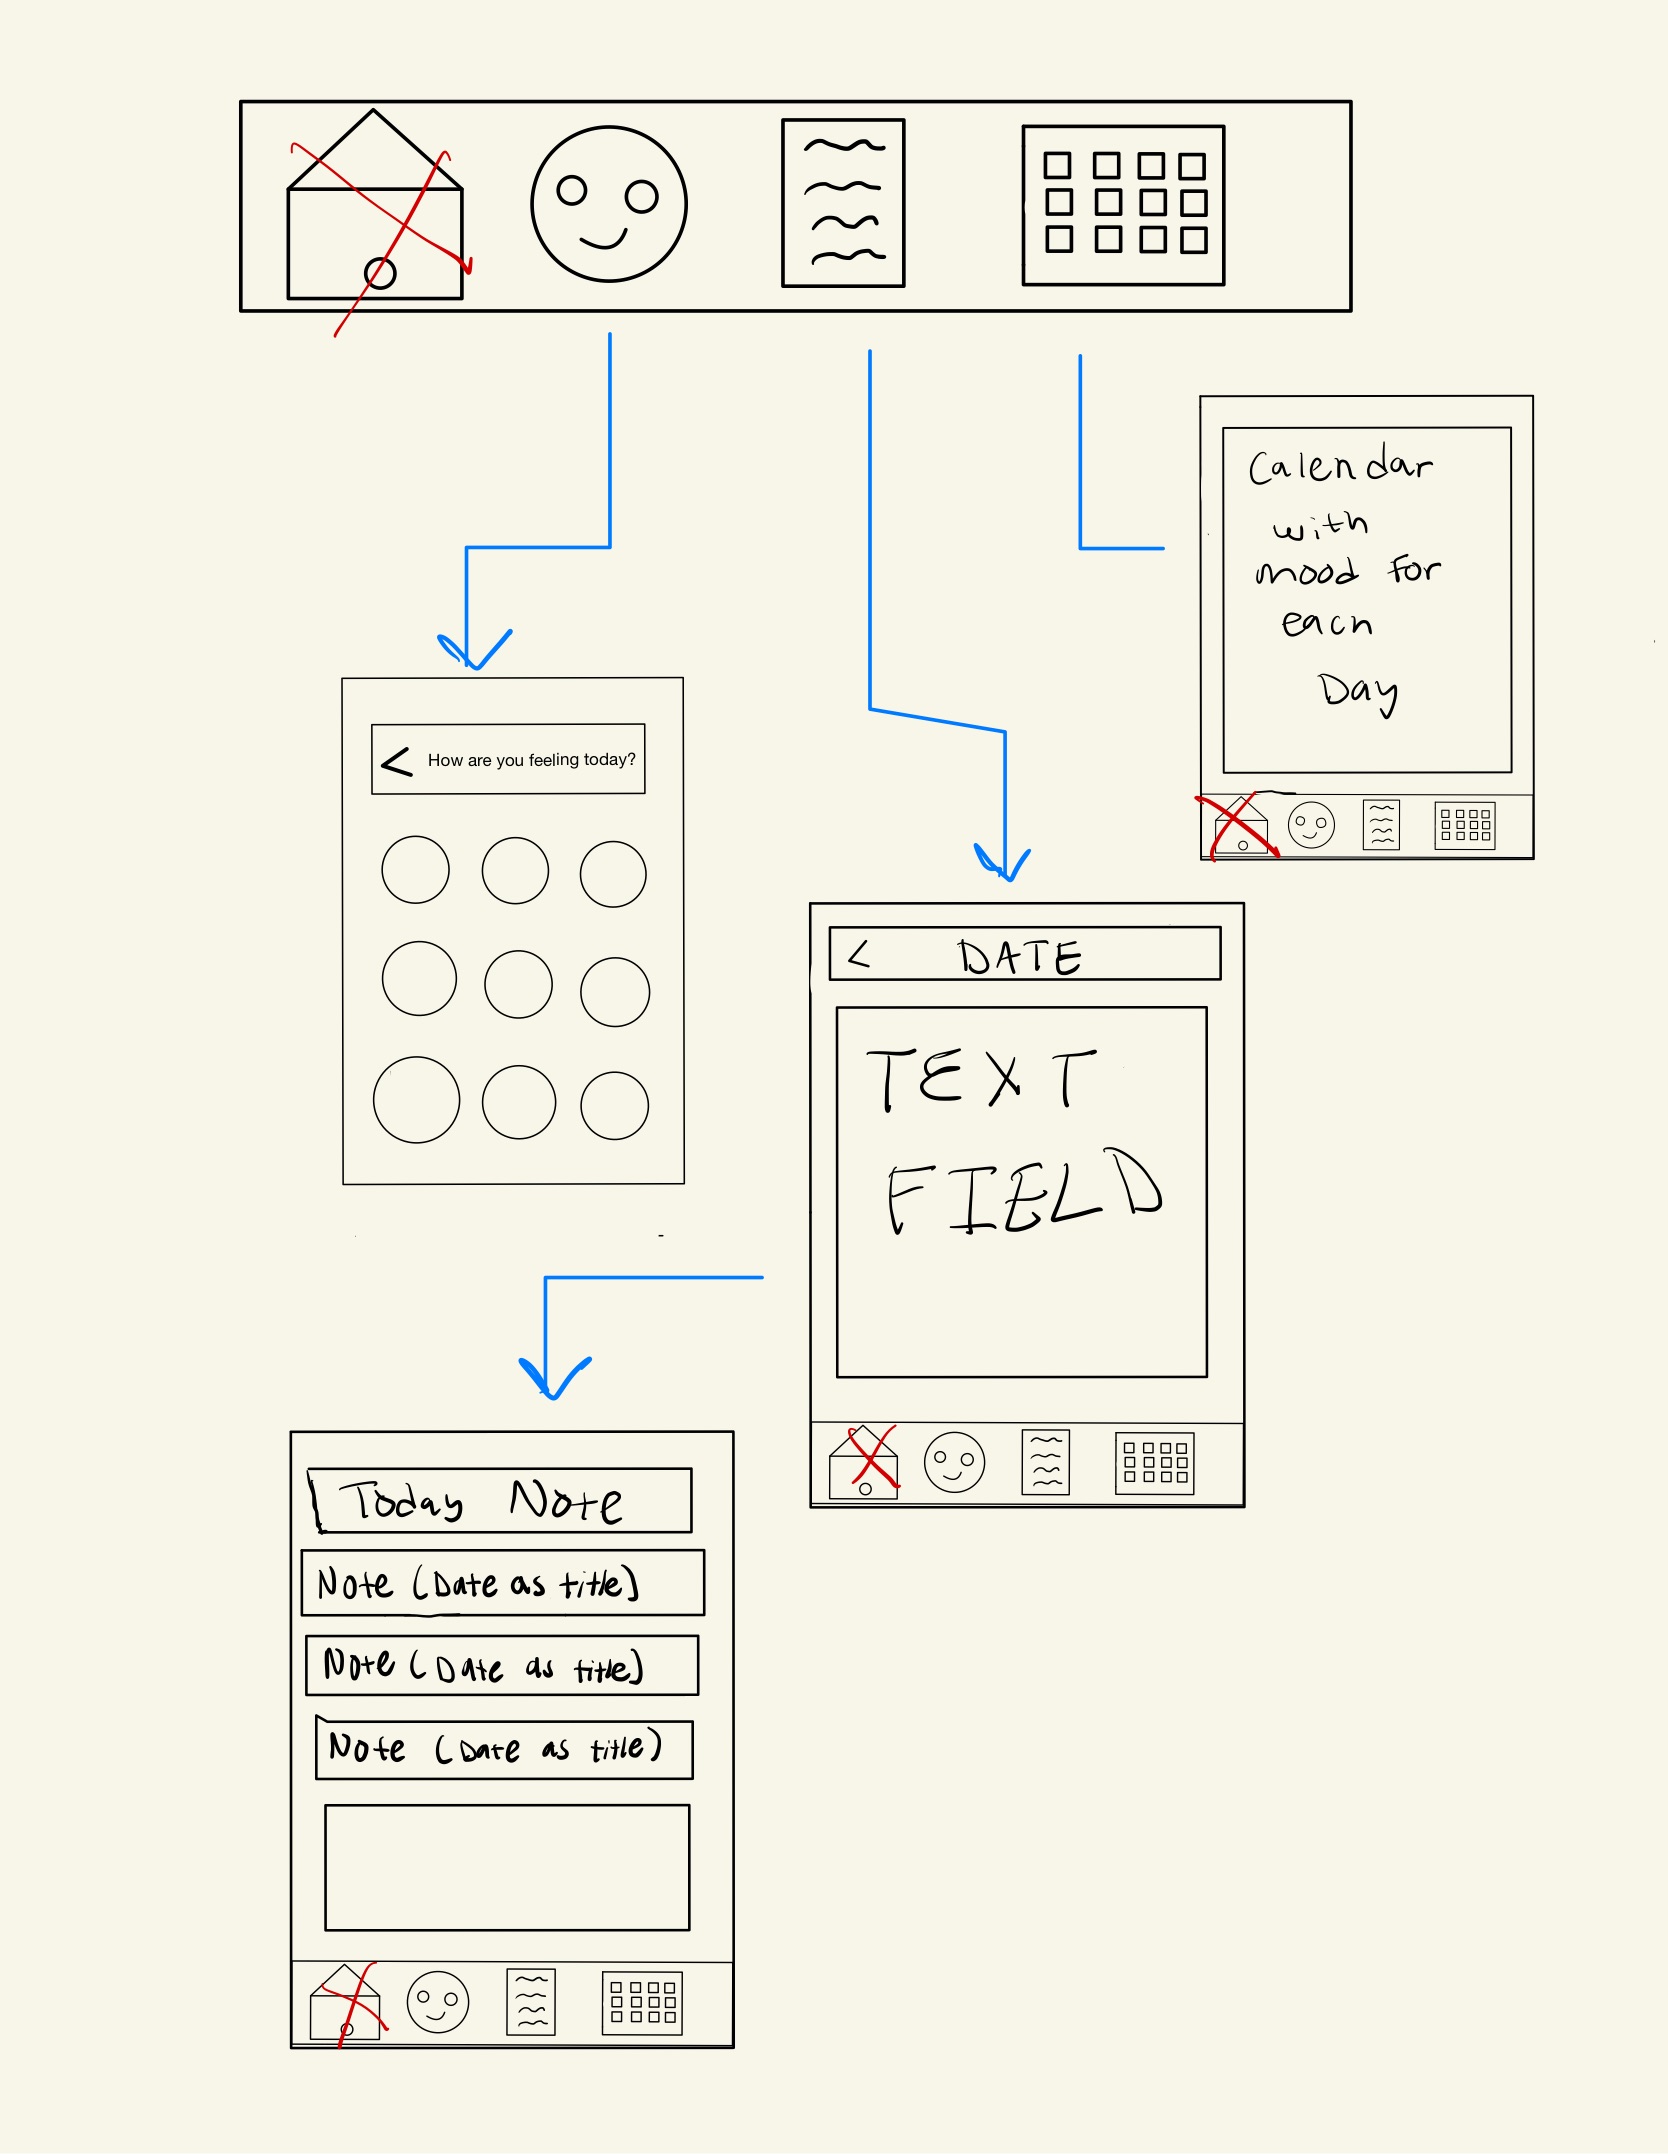 Calendar
with
mood for
each
Day
< How are you feeling today?
< DATE
TEXT
FIELD
Today Note
Note (Date as title)
Note (Date as title)
Note (Date as title)